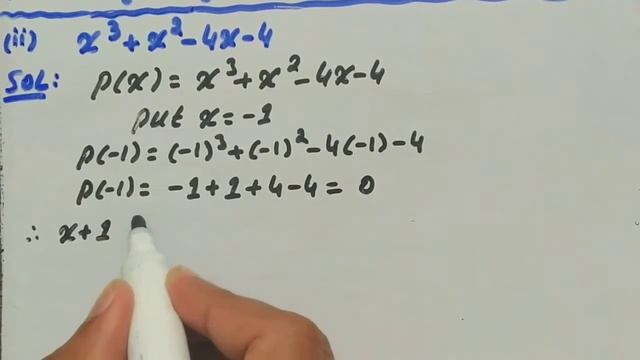 (ii) x³+x²-4x-4
SOL: p(x)= x³+x²-4x-4
put x=-1
p(-1)=(-1)³+(-1)²-4(-1)-4
p(-1)= -1+1+4-4= 0
∴ x+1